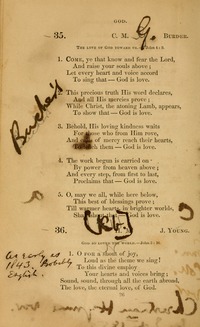 GOD.
35. C. M. BURDER.
THE LOVE OF GOD TOWARD US.
1. COME, ye that know and fear the Lord,
And raise your souls above;
Let every heart and voice accord
To sing that — God is love.
This precious truth His word declares,
And all His mercies prove;
While Christ, the atoning Lamb, appears,
To show that — God is love.
3. Behold, His loving kindness waits
For those who from Him rove,
And of mercy reach their hearts,
them — God is love.
4. The work begun is carried on
By power from heaven above;
And every step, from first to last,
Proclaims that — God is love.
5. O, may we all, while here below,
This best of blessings prove;
Till warmer hearts, in brighter worlds,
that God is love.
36. J. YOUNG.
As early as
1843. Probably
English.
1 O FOR a shout of joy,
Loud as the theme we sing!
To this divine employ
Your hearts and voices bring;
Sound, sound, through all the earth abroad,
The love, the eternal love, of God.